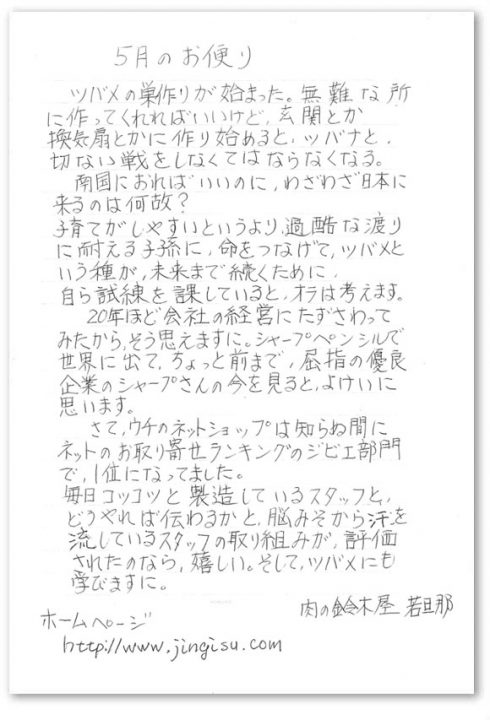 5月のお便り
ツバメの巣作りが始まった。無難な所
に作ってくれればいいけど,玄関とか
換気扇とかに作り始めると,ツバナと,
切ない戦をしなくてはならなくなる。
南国におればいいのに,わざわざ日本に
来るのは何故?
子育てがしやすいというより,過酷な渡り
に耐える子孫に,命をつなげて,ツバメと
いう種が,未来まで続くために,
自ら試練を課していると,オラは考えます。
20年ほど会社の経営にたずさわって
みたから,そう思えますに。シャープペンシルで
世界に出て,ちょっと前まで,屈指の優良
企業のシャープさんの今を見ると,よけいに
思います。
さて,ウチのネットショップは知らぬ間に
ネットのお取り寄せランキングのジビエ部門
で,1位になってました。
毎日コツコツと製造しているスタッフと,
どうやれば伝わるかと,脳みそから汗を
流しているスタッフの取り組みが,評価
されたのなら,嬉しい。そして,ツバメにも
学びますに。
肉の鈴木屋 若旦那
ホームページ
http://www.jingisu.com